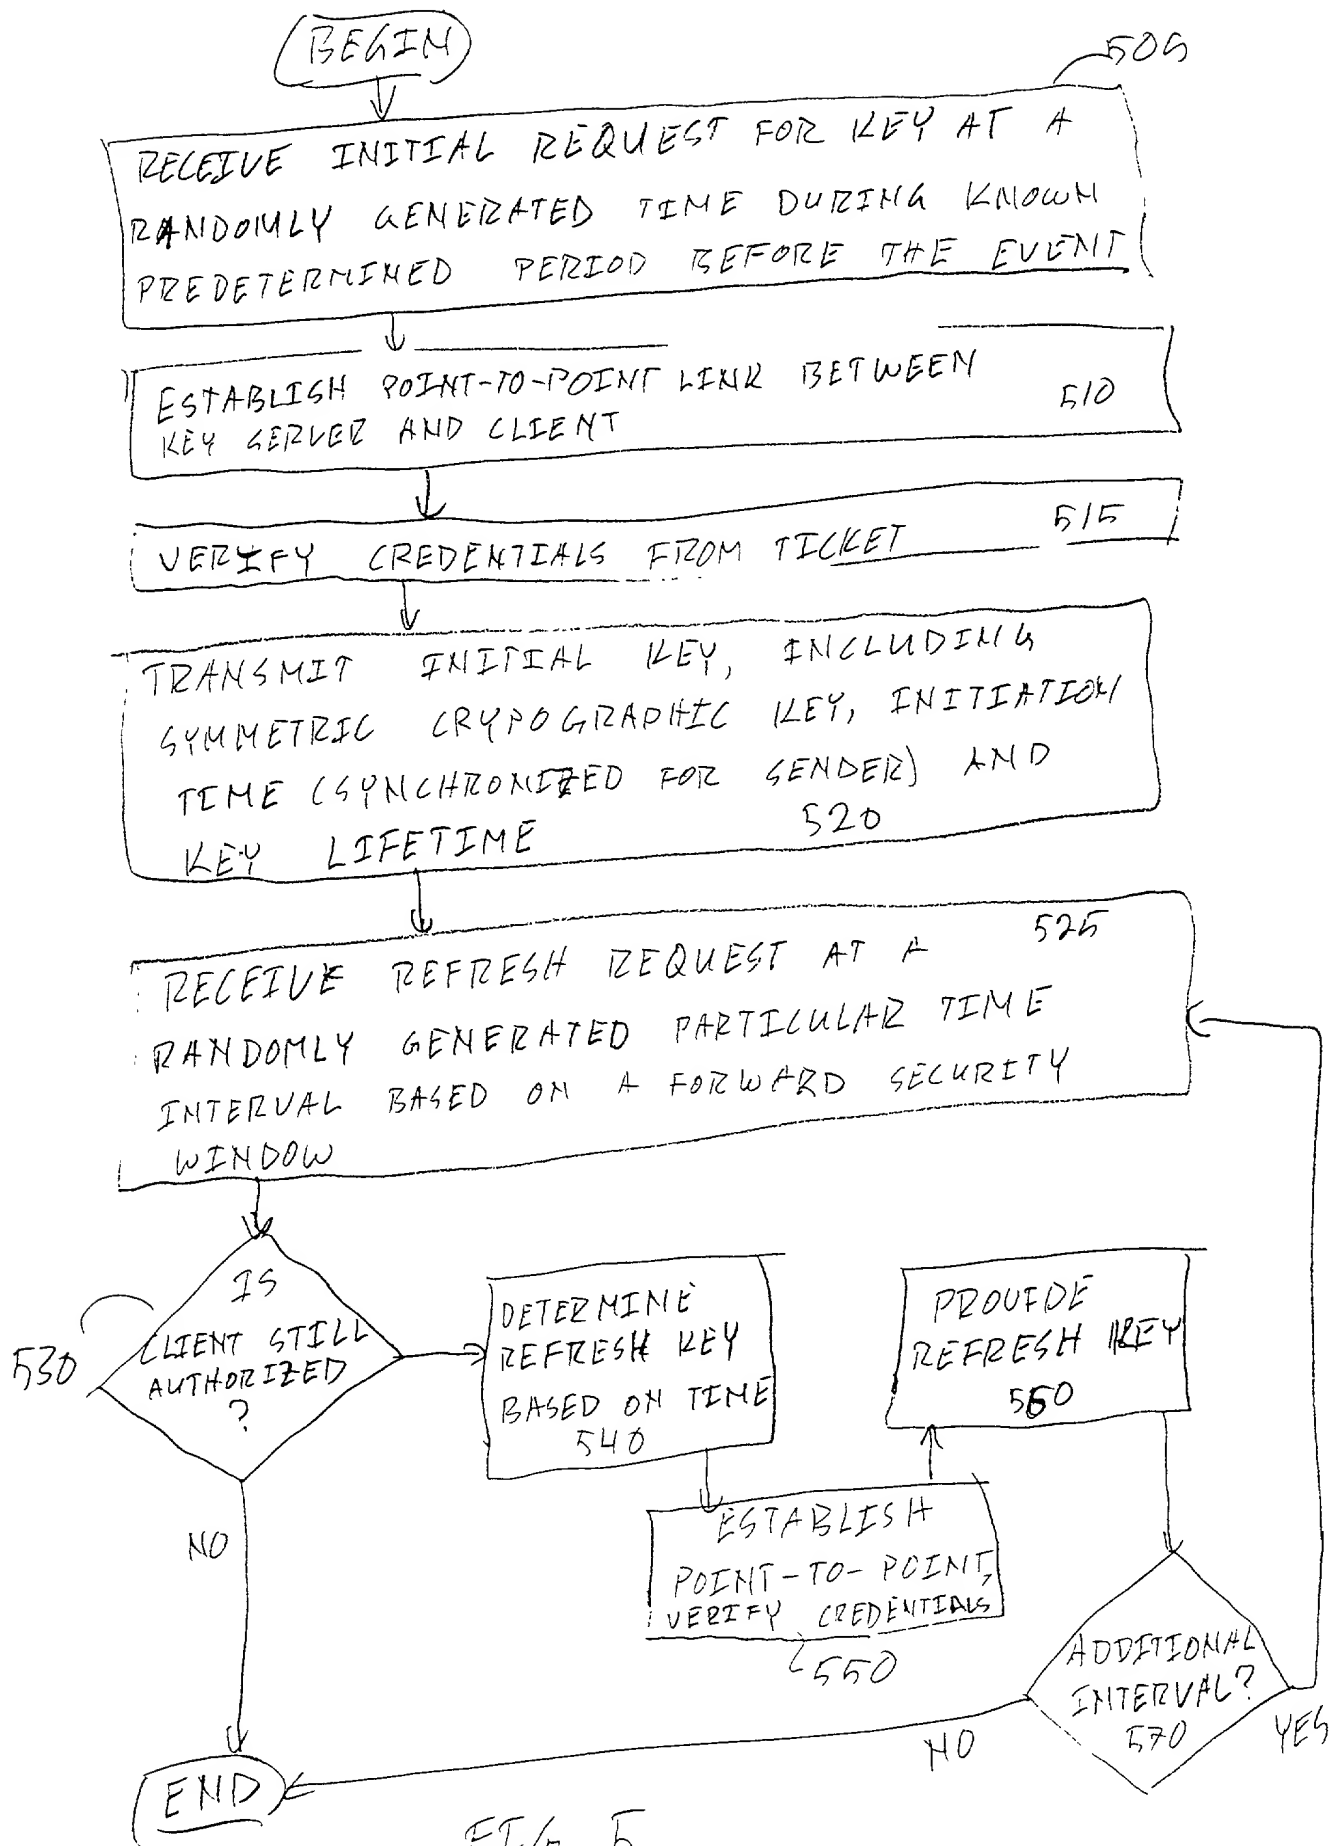 BEGIN
505
RECEIVE INITIAL REQUEST FOR KEY AT A
RANDOMLY GENERATED TIME DURING KNOWN
PREDETERMINED PERIOD BEFORE THE EVENT
ESTABLISH POINT-TO-POINT LINK BETWEEN
KEY SERVER AND CLIENT
510
VERIFY CREDENTIALS FROM TICKET
515
TRANSMIT INITIAL KEY, INCLUDING
SYMMETRIC CRYPOGRAPHIC KEY, INITIATION
TIME (SYNCHRONIZED FOR SENDER) AND
KEY LIFETIME
520
525
RECEIVE REFRESH REQUEST AT A
RANDOMLY GENERATED PARTICULAR TIME
INTERVAL BASED ON A FORWARD SECURITY
WINDOW
IS
CLIENT STILL
AUTHORIZED
?
530
DETERMINE
REFRESH KEY
BASED ON TIME
540
PROVIDE
REFRESH KEY
560
NO
ESTABLISH
POINT-TO-POINT,
VERIFY CREDENTIALS
550
ADDITIONAL
INTERVAL?
570
YES
NO
END
FIG. 5